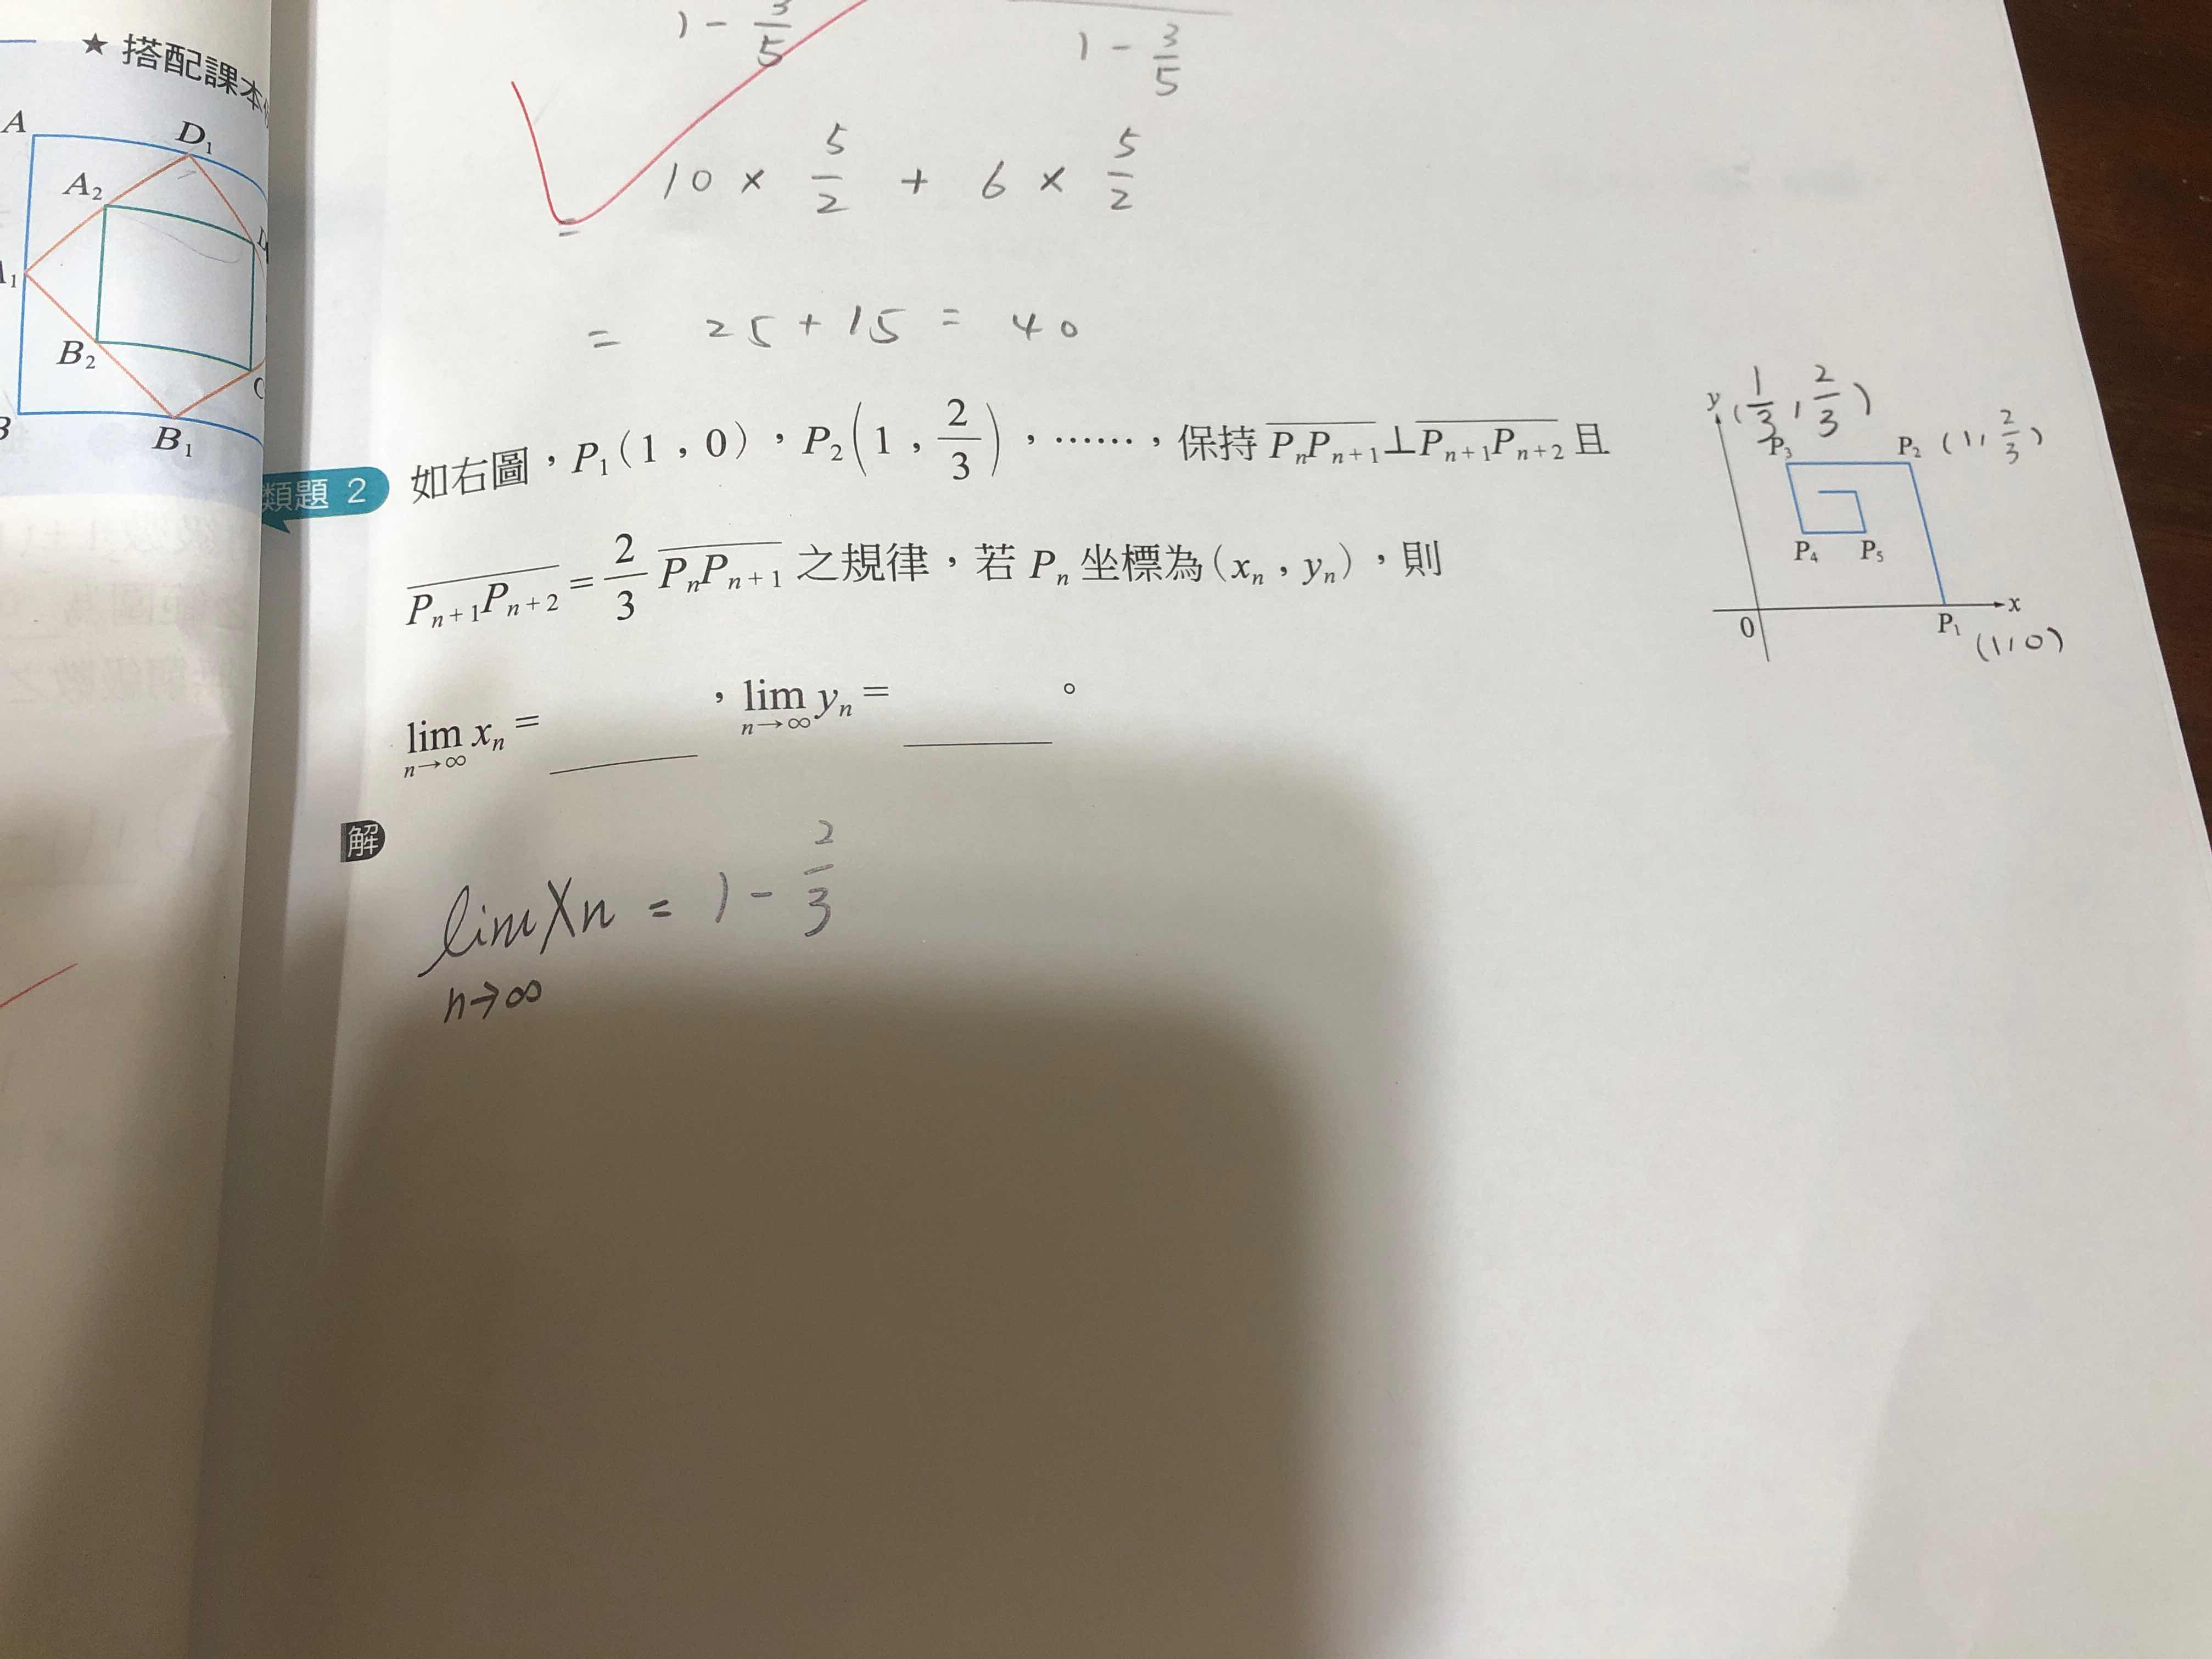 ★ 搭配課本
A
D₁
A₂
A₁
B₂
B
B₁
1 - 3/5
1 - 3/5
= 10 × 5/2 + 6 × 5/2
= 25 + 15 = 40
類題 2
如右圖，P₁(1，0)，P₂(1，2/3)，……，保持 \overline{PₙPₙ₊₁}⊥\overline{Pₙ₊₁Pₙ₊₂} 且
\overline{Pₙ₊₁Pₙ₊₂} = 2/3 \overline{PₙPₙ₊₁} 之規律，若 Pₙ 坐標為(xₙ，yₙ)，則
lim n→∞ xₙ = ______，lim n→∞ yₙ = ______。
y (1/3, 2/3)
P₃ P₂ (1, 2/3)
P₄ P₅
0 P₁ x
(1, 0)
解
lim Xn = 1 - 2/3
n→∞